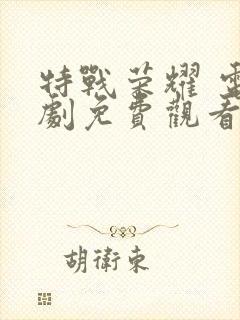 特戰荣耀 電
劇免費觀看
胡衛東